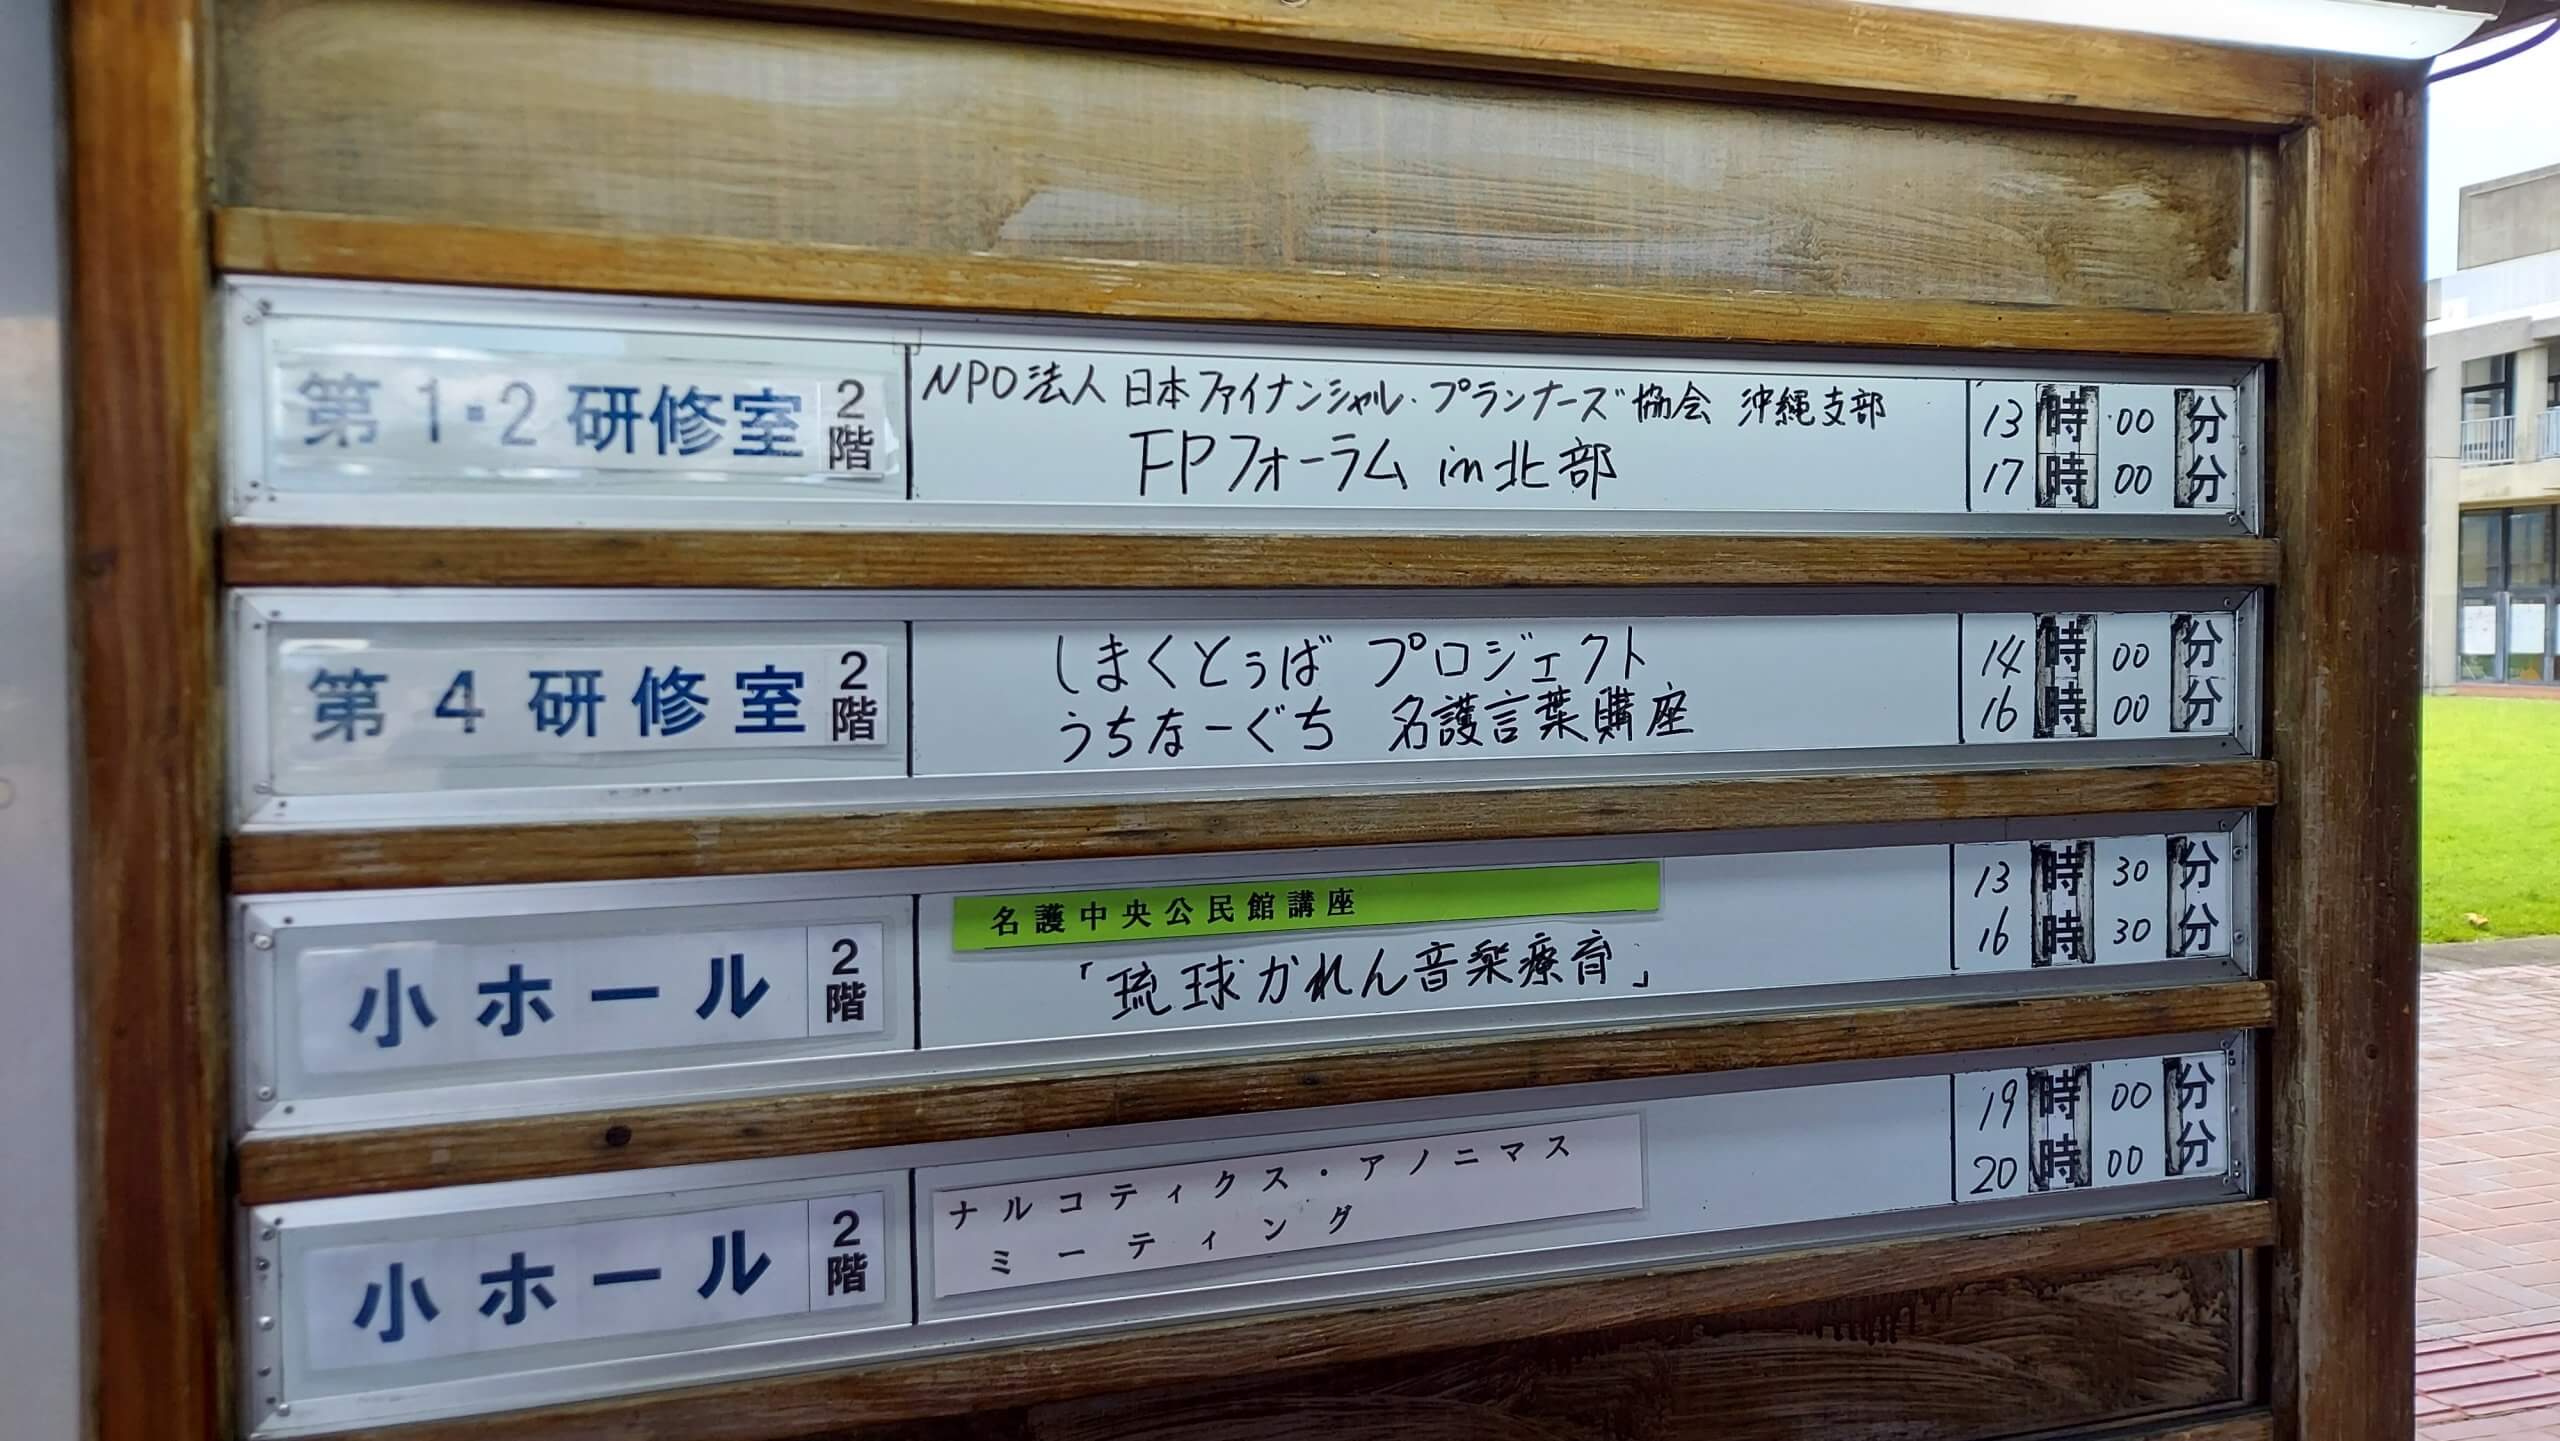 第1・2研修室 2階
NPO法人 日本ファイナンシャル・プランナーズ協会 沖縄支部
FPフォーラム in 北部
13時00分
17時00分
第4研修室 2階
しまくとぅば プロジェクト
うちなーぐち 名護言葉購座
14時00分
16時00分
小ホール 2階
名護中央公民館講座
「琉球かれん音楽療育」
13時30分
16時30分
小ホール 2階
ナルコティクス・アノニマス
ミーティング
19時00分
20時00分